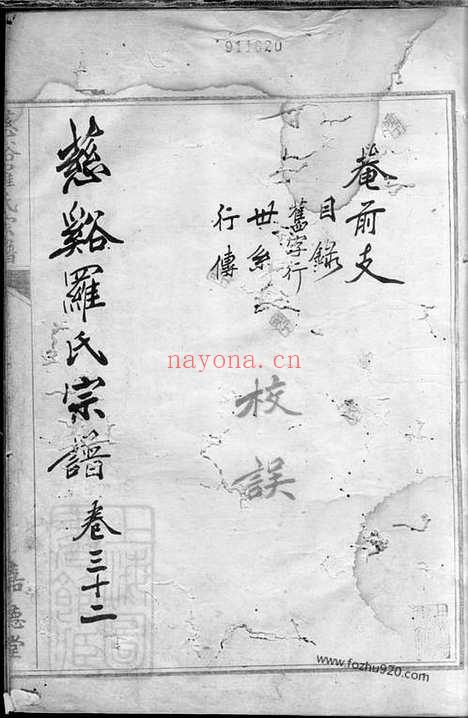 911620
菴前支
目錄
舊字行
世系
行傳
校誤
慈谿羅氏宗譜 卷三十二
嘉德堂
nayona.cn
www.fozhu920.com